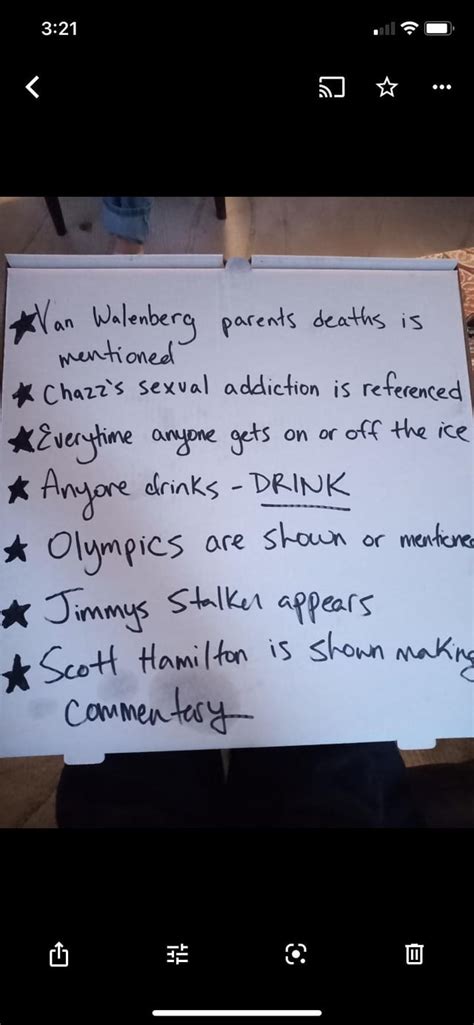 3:21
★Van Walenberg parents deaths is
mentioned
★ Chazz's sexual addiction is referenced
★Everytime anyone gets on or off the ice
★ Anyone drinks - DRINK
★ Olympics are shown or mentioned
★ Jimmys Stalker appears
★ Scott Hamilton is shown making
commentary